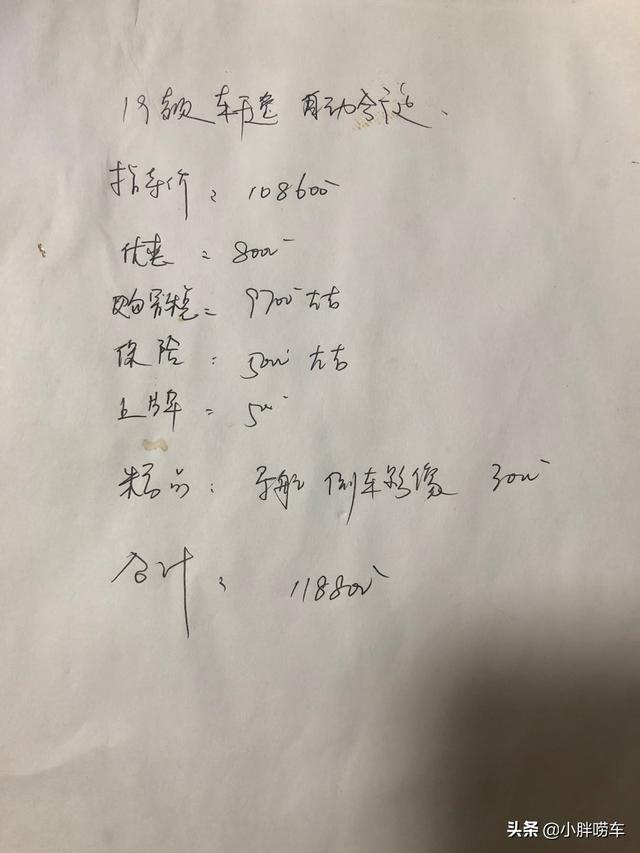 19款 轩逸 自动舒适.
指导价: 108600
优惠: 8000
购置税: 9700 左右
保险: 5000 左右
上牌: 500
精品: 导航 倒车影像 3000
合计: 118800
头条 @小胖唠车